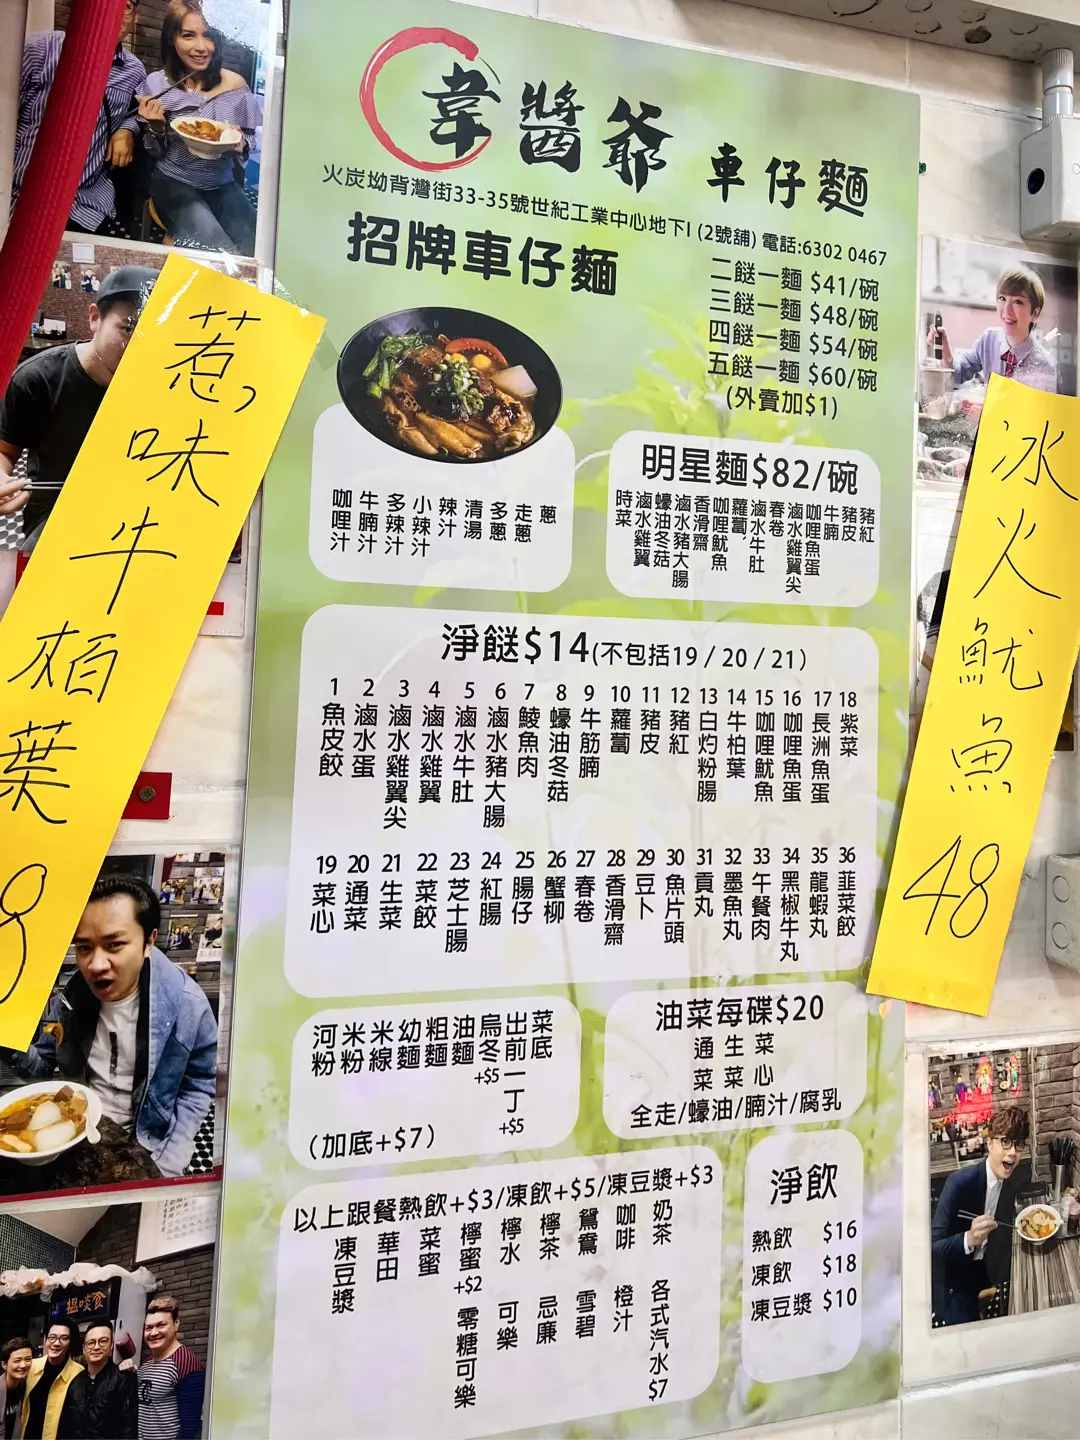 韋醬爺 車仔麵
火炭坳背灣街33-35號世紀工業中心地下I (2號舖) 電話:6302 0467
招牌車仔麵
二餸一麵 $41/碗
三餸一麵 $48/碗
四餸一麵 $54/碗
五餸一麵 $60/碗
(外賣加$1)
咖哩汁
牛腩汁
多辣汁
小辣汁
辣汁
清湯
多蔥
走蔥
蔥
明星麵$82/碗
時菜
滷水雞翼
蠔油冬菇
滷水豬大腸
香滑齋
咖哩魷魚
蘿蔔、
滷水牛肚
春卷
滷水雞翼尖
咖哩魚蛋
牛腩
豬皮
豬紅
淨餸$14(不包括19 / 20 / 21)
1 魚皮餃
2 滷水蛋
3 滷水雞翼尖
4 滷水雞翼
5 滷水牛肚
6 滷水豬大腸
7 鯪魚肉
8 蠔油冬菇
9 牛筋腩
10 蘿蔔
11 豬皮
12 豬紅
13 白灼粉腸
14 牛柏葉
15 咖哩魷魚
16 咖哩魚蛋
17 長洲魚蛋
18 紫菜
19 菜心
20 通菜
21 生菜
22 菜餃
23 芝士腸
24 紅腸
25 腸仔
26 蟹柳
27 春卷
28 香滑齋
29 豆卜
30 魚片頭
31 貢丸
32 墨魚丸
33 午餐肉
34 黑椒牛丸
35 龍蝦丸
36 韮菜餃
河粉
米粉
米線
幼麵
粗麵
油麵
烏冬+$5
出前一丁+$5
菜底
(加底+$7)
油菜每碟$20
通菜
生菜
菜心
全走/蠔油/腩汁/腐乳
以上跟餐熱飲+$3/凍飲+$5/凍豆漿+$3
凍豆漿
華田
菜蜜
檸蜜+$2
檸水
檸茶
鴛鴦
咖啡
奶茶
零糖可樂
可樂
忌廉
雪碧
橙汁
各式汽水$7
淨飲
熱飲 $16
凍飲 $18
凍豆漿 $10
惹味牛栢葉
冰火魷魚 48
搵啖食